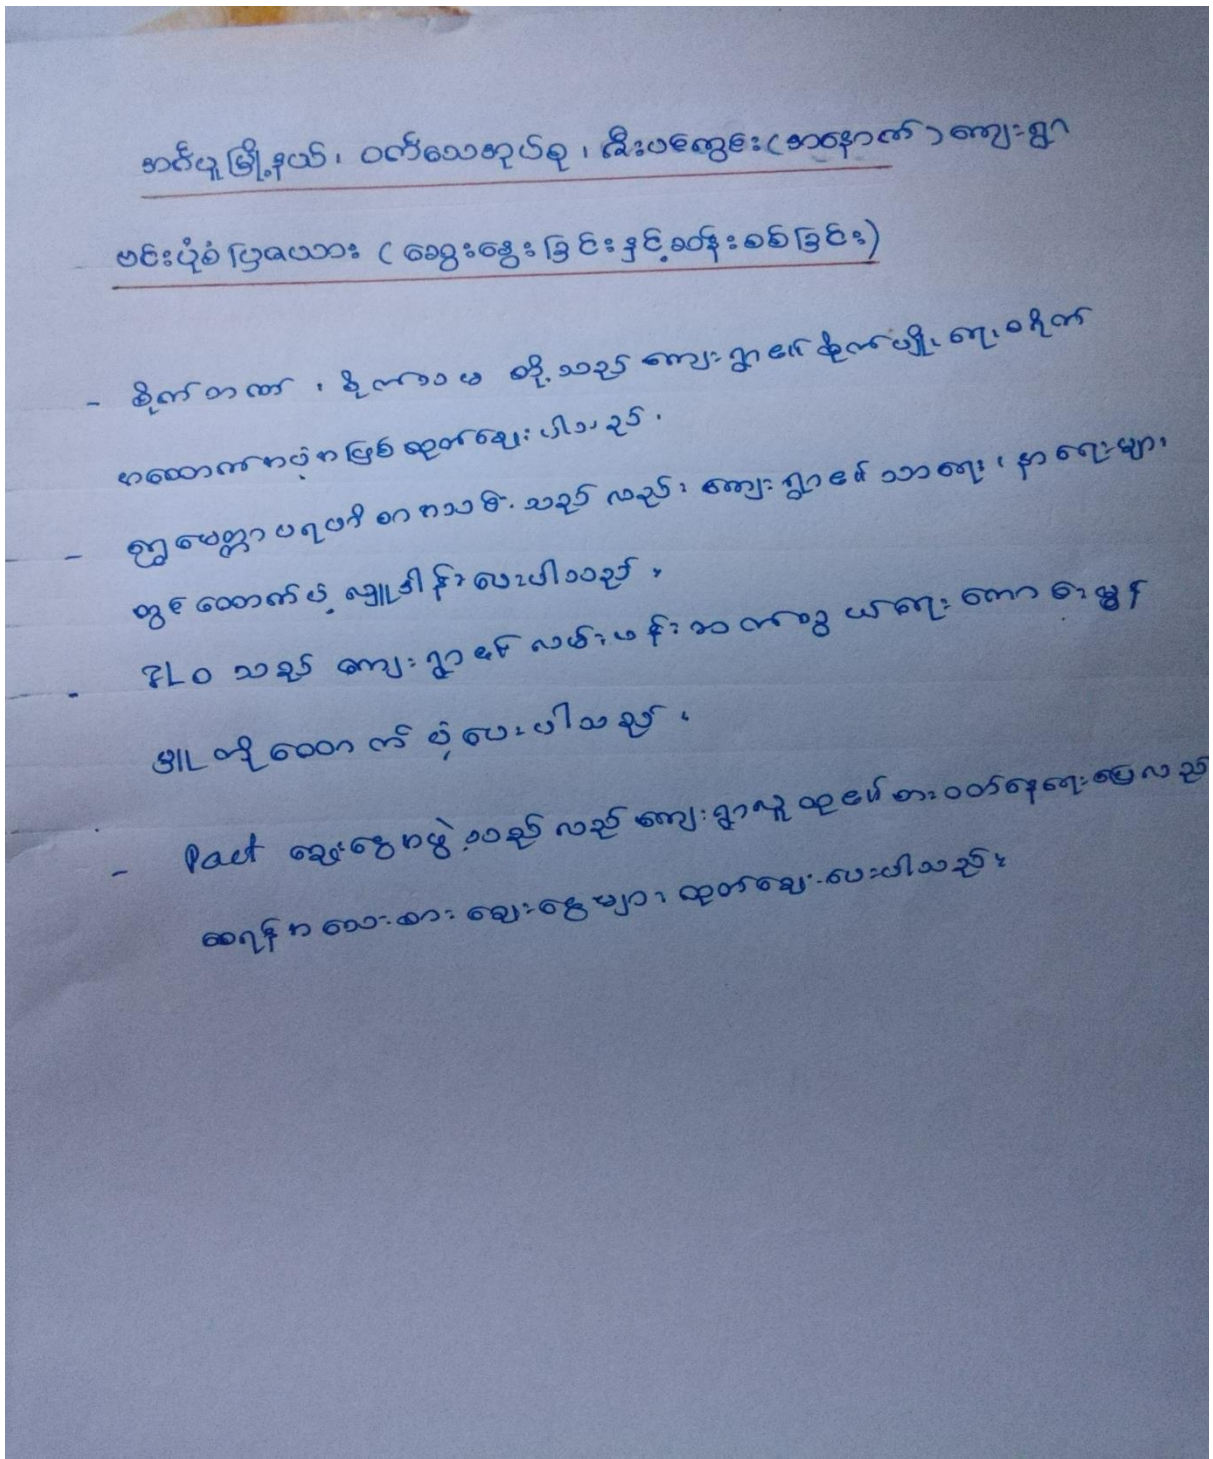 အင်္ဂပူမြို့နယ်၊ ဝက်သေအုပ်စု၊ ဇီးပင်တွင်း(အနောက်)ကျေးရွာ
ဗင်းပုံစံပြဇယား (ဆွေးနွေးခြင်းနှင့်ခတန်းစစ်ခြင်း)
- စိုက်ဘဏ်၊ စိုက်သမ တို့သည် ကျေးရွာ၏ စိုက်ပျိုးရေးစရိုက်
အထောက်အပံ့အဖြစ် ထုတ်ချေးပါသည်။
- ဣမေတ္တာပရဟိ အသင်းသည် လည်း ကျေးရွာ၏ သာရေး၊ နာရေးများ
တွင် ထောက်ပံ့ လှူဒါန်းပေးပါသည်။
- FLO သည် ကျေးရွာ၏ လမ်းပန်းဆက်သွယ်ရေး ကောင်းမွန်
တို့ထောက်ပံ့ပေးပါသည်။
- Pact ချေးငွေအဖွဲ့သည် လည် ကျေးရွာလူထု၏ စားဝတ်နေရေးပြေလည်
စေရန် အသေးစား ချေးငွေများ ထုတ်ချေးပေးပါသည်။